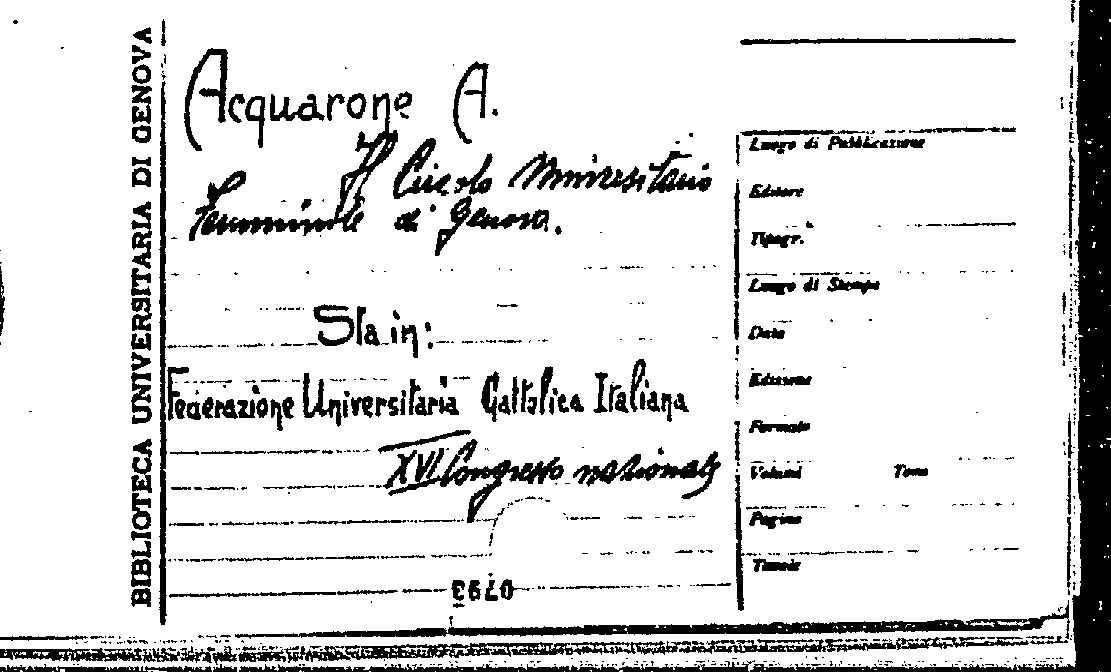 BIBLIOTECA UNIVERSITARIA DI GENOVA
Acquarone A.
Il Circolo Universitario
Femminile di Genova.
Sta in:
Federazione Universitaria Cattolica Italiana
XVI Congresso nazionale
0793
Luogo di Pubblicazione
Editore
Tipogr.
Luogo di Stampa
Data
Edizione
Formato
Volumi Tomo
Pagine